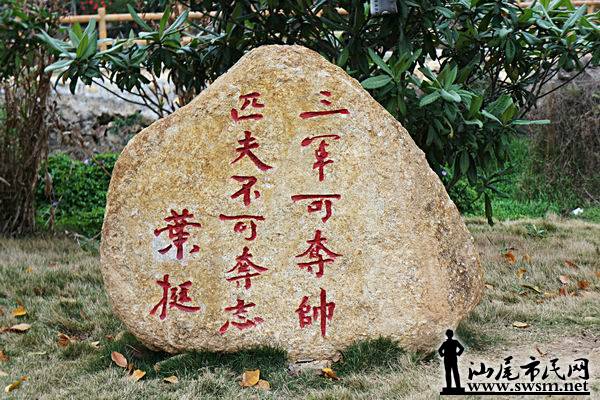 三军可夺帅
匹夫不可夺志
葉挺
汕尾市民网
www.swsm.net